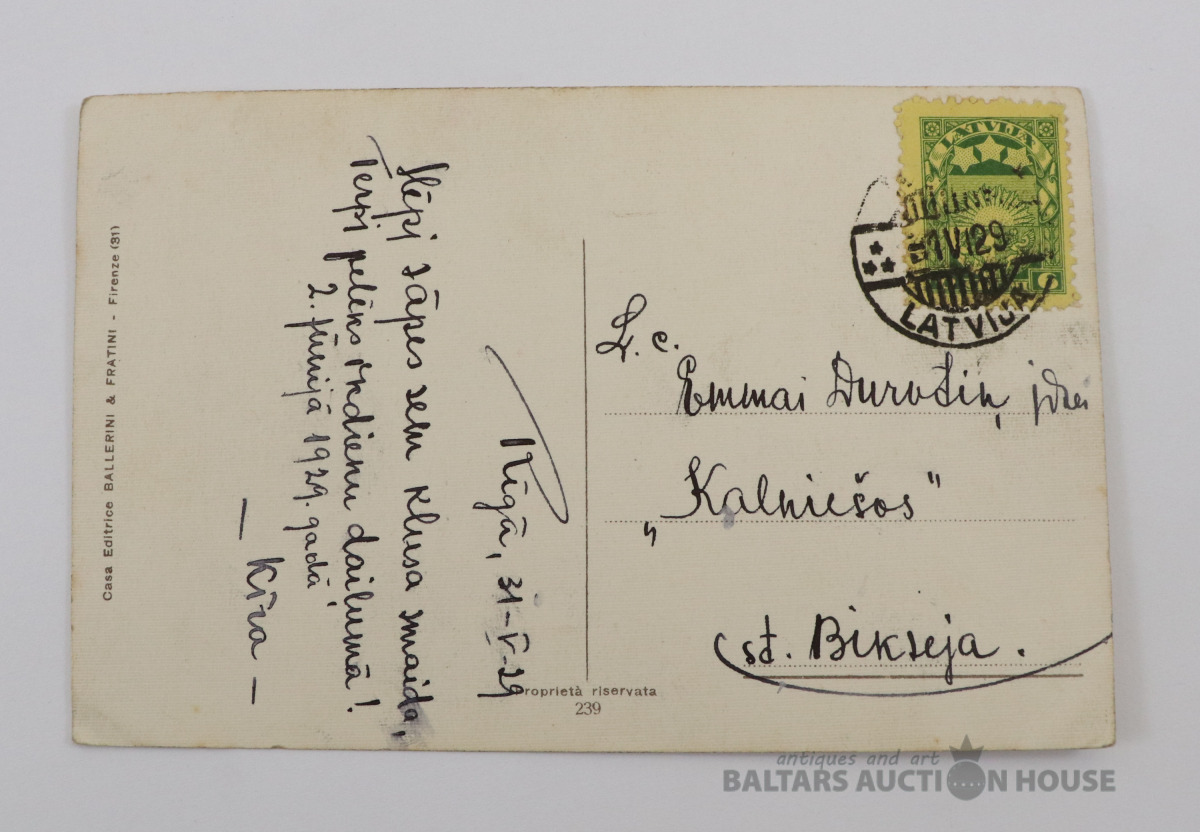 Casa Editrice BALLERINI & FRATINI - Firenze (31)
Rīgā, 31-V-29
Slēpj sāpes sem klusa smaida,
Terpj pelēks ikdienu dailumā!
2. jūnijā 1929. gadā
— Kira —
Proprietà riservata
239
LATVIJA
6
1 VI 29
LATVIJA
L. c.
Emmai Duročiņ jdzei
„Kalniešos"
st. Bikseja.
antiques and art
BALTARS AUCTION HOUSE